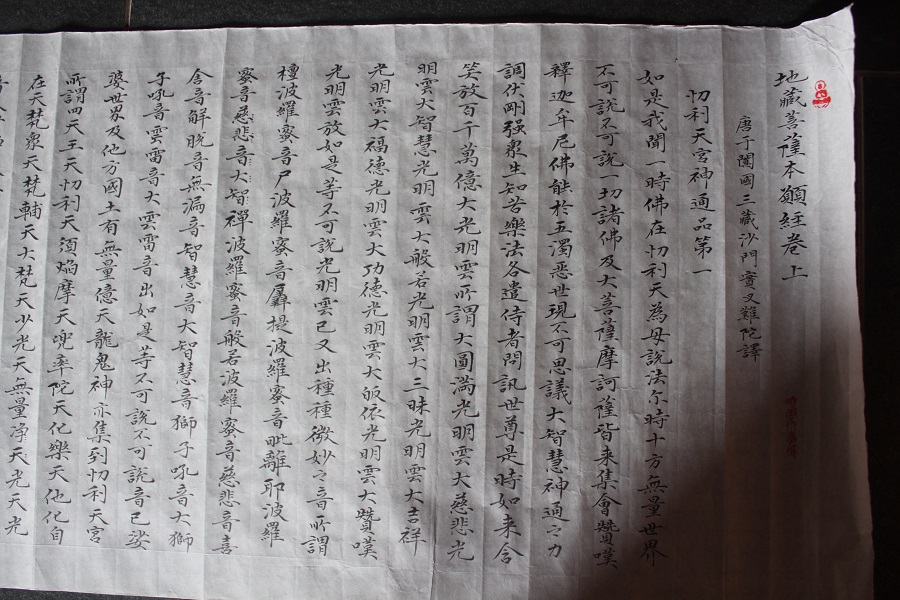 地藏菩薩本願經卷上
唐于闐國三藏沙門實叉難陀譯
忉利天宮神通品第一
如是我聞一時佛在忉利天為母說法尔時十方無量世界
不可說不可說一切諸佛及大菩薩摩訶薩皆来集會贊嘆
釋迦牟尼佛能於五濁惡世現不可思議大智慧神通之力
調伏剛強衆生知苦樂法各遣侍者問訊世尊是時如来含
笑放百千萬億大光明雲所謂大圓滿光明雲大慈悲光
明雲大智慧光明雲大般若光明雲大三昧光明雲大吉祥
光明雲大福德光明雲大功德光明雲大皈依光明雲大贊嘆
光明雲放如是等不可說光明雲已又出種種微妙之音所謂
檀波羅蜜音尸波羅蜜音羼提波羅蜜音毗離耶波羅
蜜音慈悲音大智禪波羅蜜音般若波羅蜜音慈悲音喜
舍音解脫音無漏音智慧音大智慧音獅子吼音大獅
子吼音雲雷音大雲雷音出如是等不可說不可說音已娑
婆世界及他方國土有無量億天龍鬼神亦集到忉利天宮
所謂四天王天忉利天須焰摩天兜率陀天化樂天他化自
在天梵衆天梵輔天大梵天少光天無量净天光天光